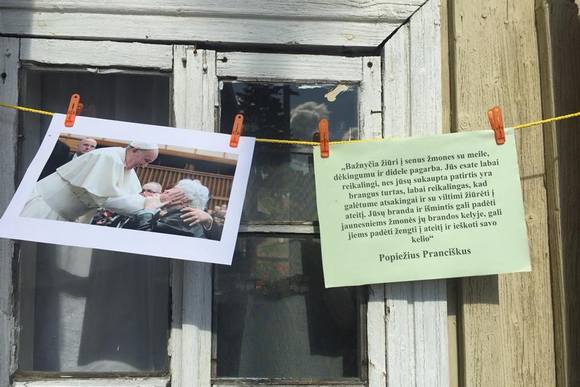 „Bažnyčia žiūri į senus žmones su meile,
dėkingumu ir didele pagarba. Jūs esate labai
reikalingi, nes jūsų sukaupta patirtis yra
brangus turtas, labai reikalingas, kad
galėtume atsakingai ir su viltimi žiūrėti į
ateitį. Jūsų branda ir išmintis gali padėti
jaunesniems žmonės jų brandos kelyje, gali
jiems padėti žengti į ateitį ir ieškoti savo
kelio“
Popiežius Pranciškus